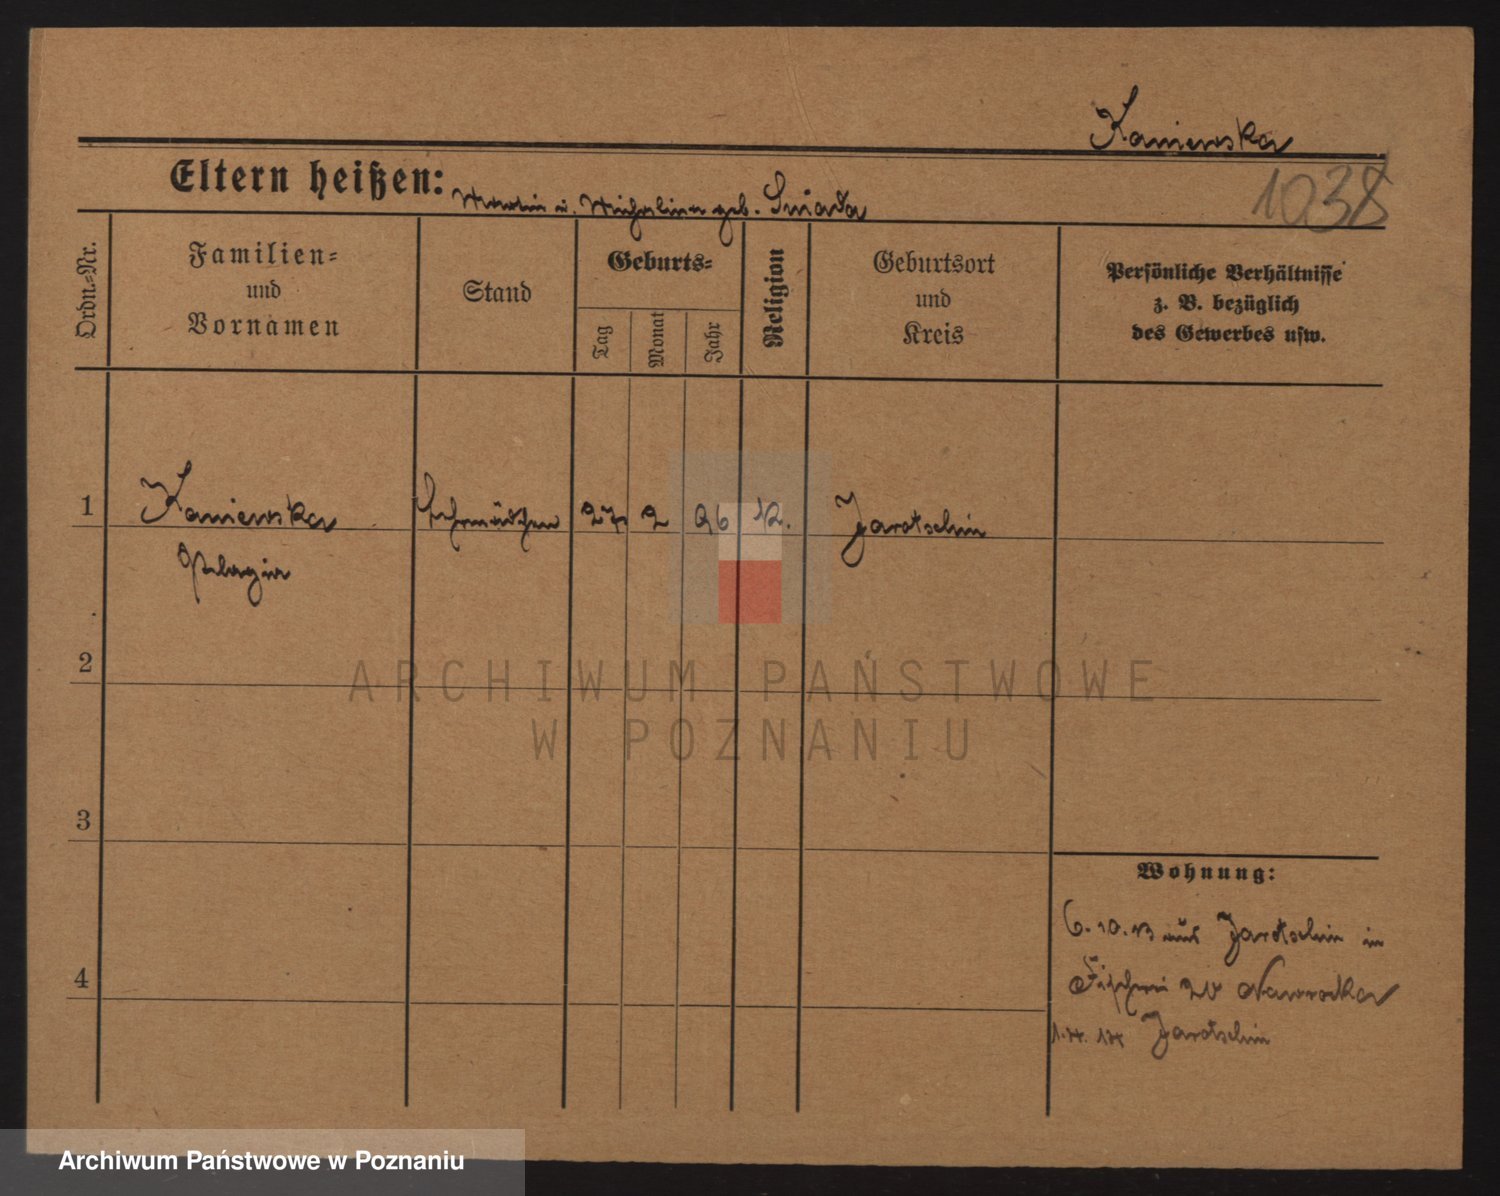 Kaniewska
1038
Eltern heißen: Martin u. Michalina geb. Sniada
Ordn.=Nr.
Familien=
und
Vornamen
Stand
Geburts=
Tag
Monat
Jahr
Religion
Geburtsort
und
Kreis
Persönliche Verhältnisse
z. B. bezüglich
des Gewerbes usw.
1 Kaniewska Lehrmädchen 27 2 96 K. Jarotschin
Pelagia
2
3
4
Wohnung:
6.10.13 aus Jarotschin in
Fischerei 20 Nawrocka
1.4.14 Jarotschin
ARCHIWUM PAŃSTWOWE
W POZNANIU
Archiwum Państwowe w Poznaniu